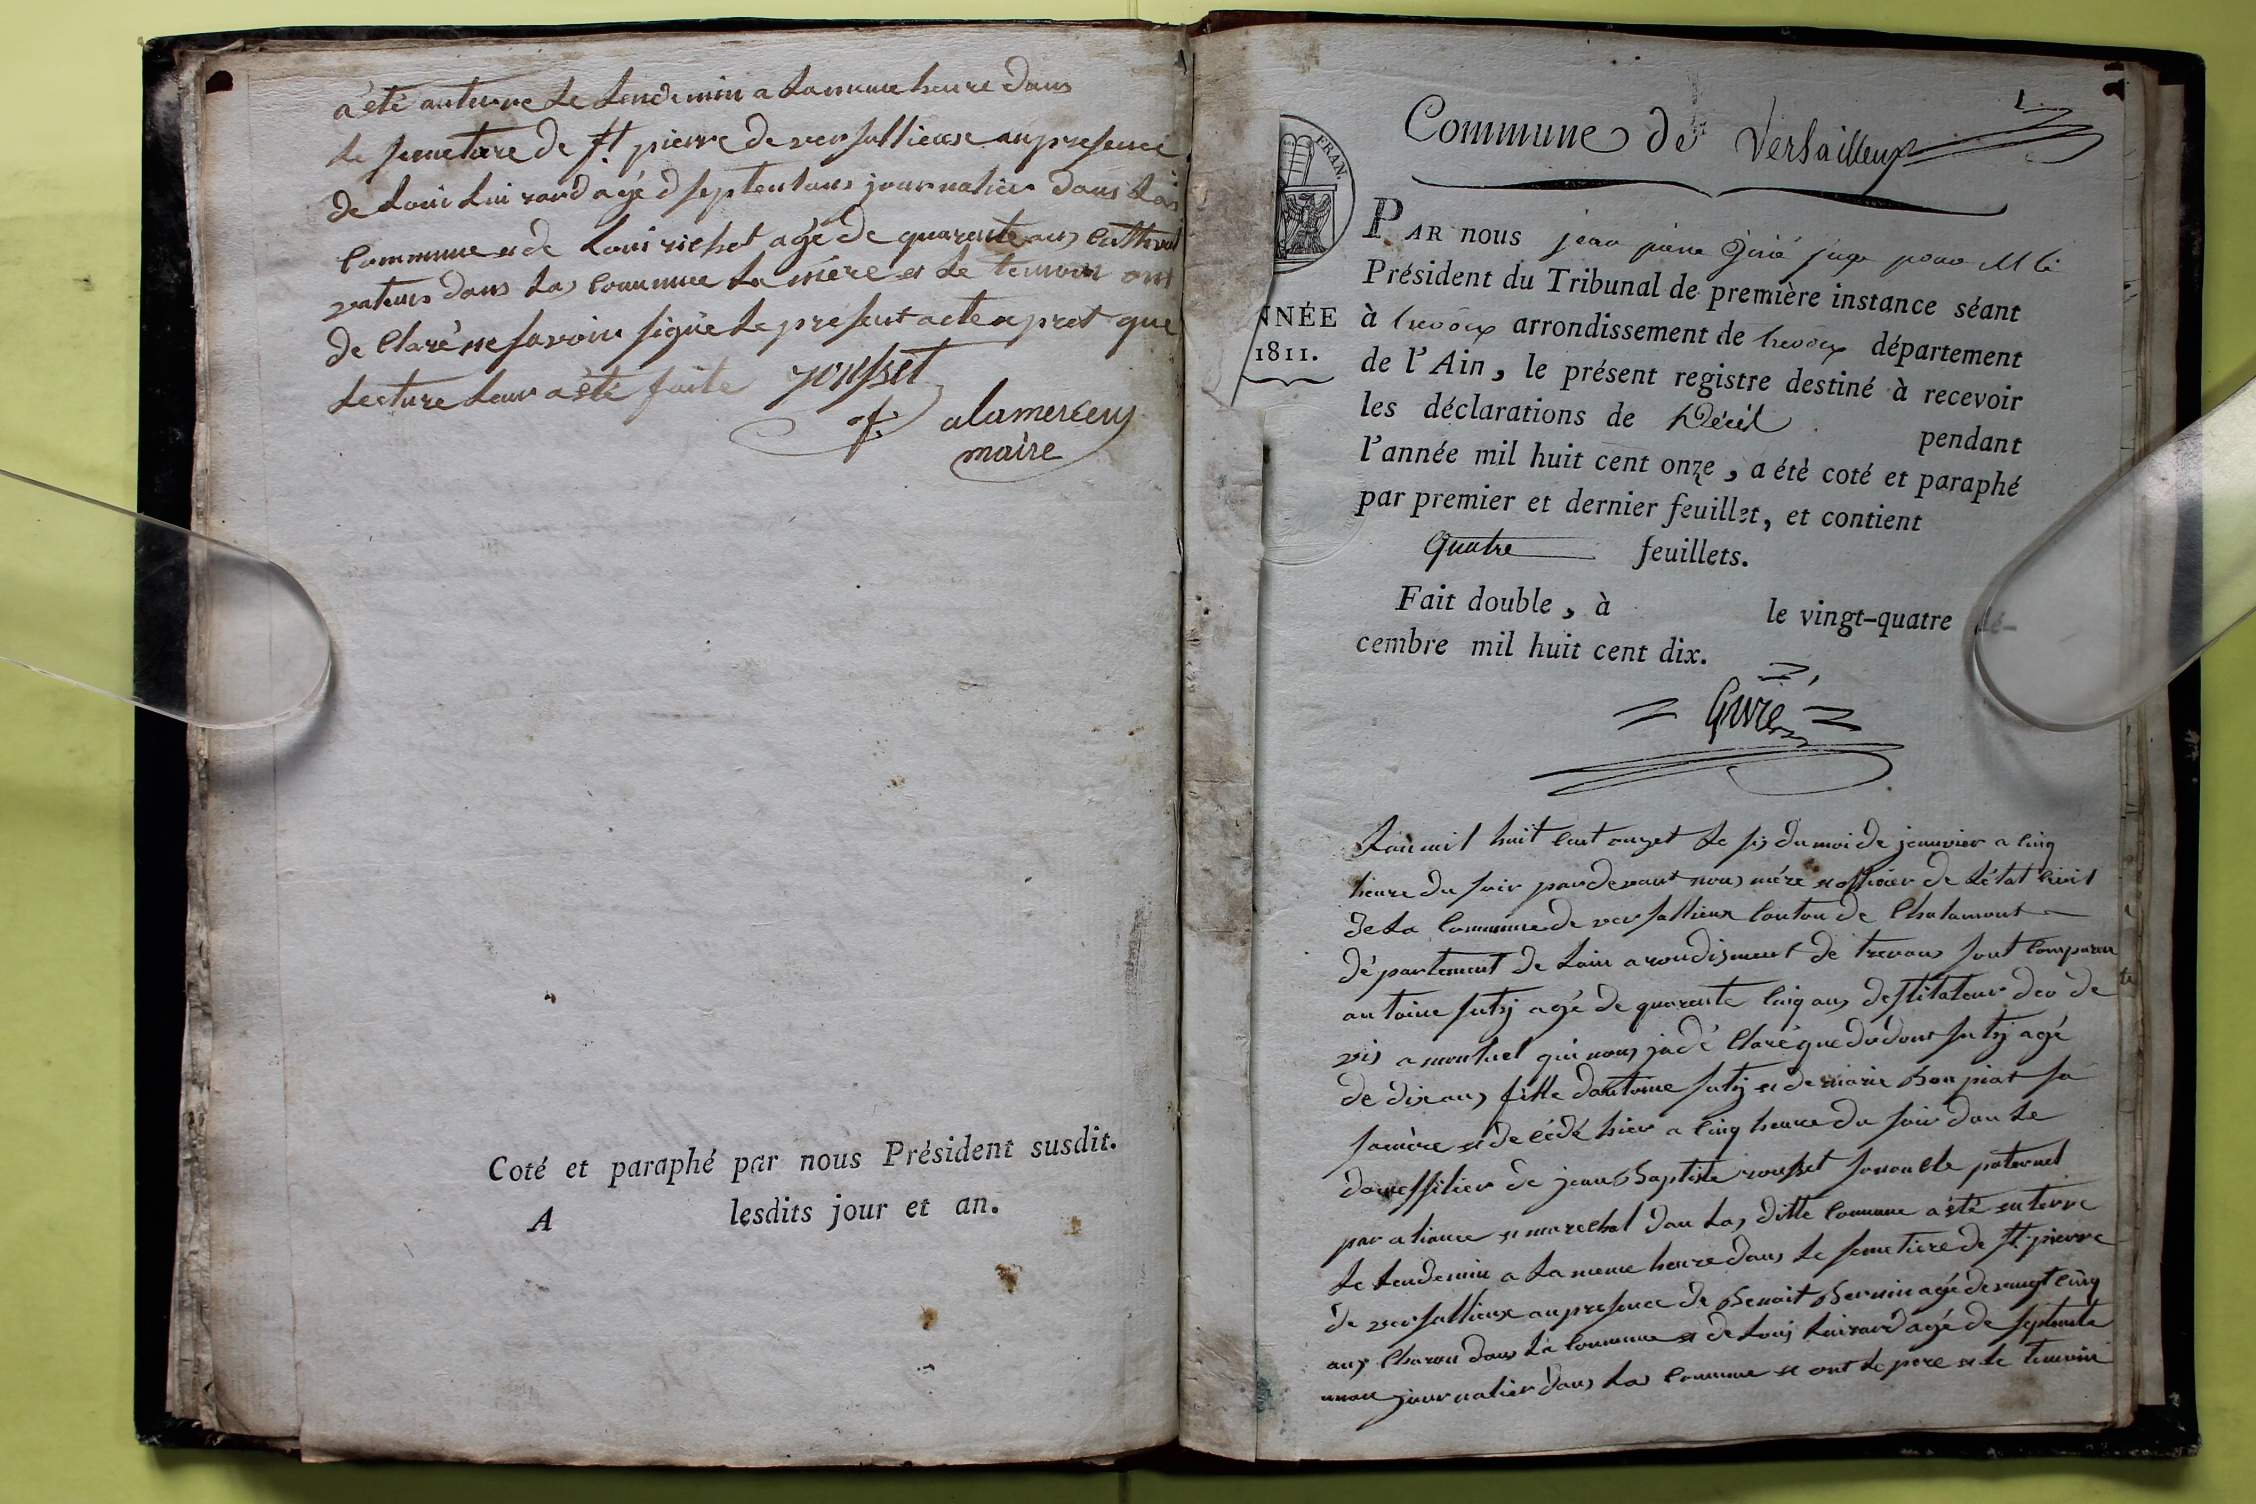 a été anterre le lendemin a la meme heure dans
le semetiere de st pierre de versallieux an presence
de Loui Luirard agé d septente ans journalier dans las
commune et de Loui richet agé de quarente ans cultiva
vateurs dans las commune la mére et le temoin ont
de Claré ne savoir signe le present acte apret que
lecture leur a été faite rousset
alamercery
maire
Coté et paraphé par nous Président susdit.
A lesdits jour et an.
1
Commune de Versailleux
FRAN.
NNÉE
1811.
PAR nous jean pierre Givré juge pour M le
Président du Tribunal de première instance séant
à trevoux arrondissement de trevoux département
de l'Ain, le présent registre destiné à recevoir
les déclarations de Décès pendant
l'année mil huit cent onze, a été coté et paraphé
par premier et dernier feuillet, et contient
Quatre feuillets.
Fait double, à le vingt-quatre dé-
cembre mil huit cent dix.
Givré
Lan mil huit cent onzet le sis du moi de jeanvier a cinq
heure du soir par devant nous mére et officier de L'état civil
de La Commune de versallieux canton de Chalamont
département de Lain arondisment de trevous sont comparu
antoine agé de quarente cinq ans
a montluel qui nous ja dé Claré que agé
de dix ans fille dantoine et de marie Bonpiat sa
famére et de cédé hier a cinq heure du soir dan le
domessilier de jean Baptiste rousset son oncle paternel
par aliance et marechal dan las ditte Commune a été enterre
le lendemin a la meme heure dans le semetiere de st pierre
de versallieux an presence de Benoit Bernin agé de vingt cinq
ans Charon dans la commune et de Loui Luirard agé de septente
un an journalier dans las commune et ont le pere et le temoin